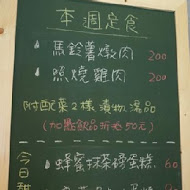 本週定食
馬鈴薯燉肉 200
照燒雞肉 200
附配菜2樣 漬物.湯品
(加點飲品折抵50元)
今日甜
蜂蜜抹茶磅蛋糕 60